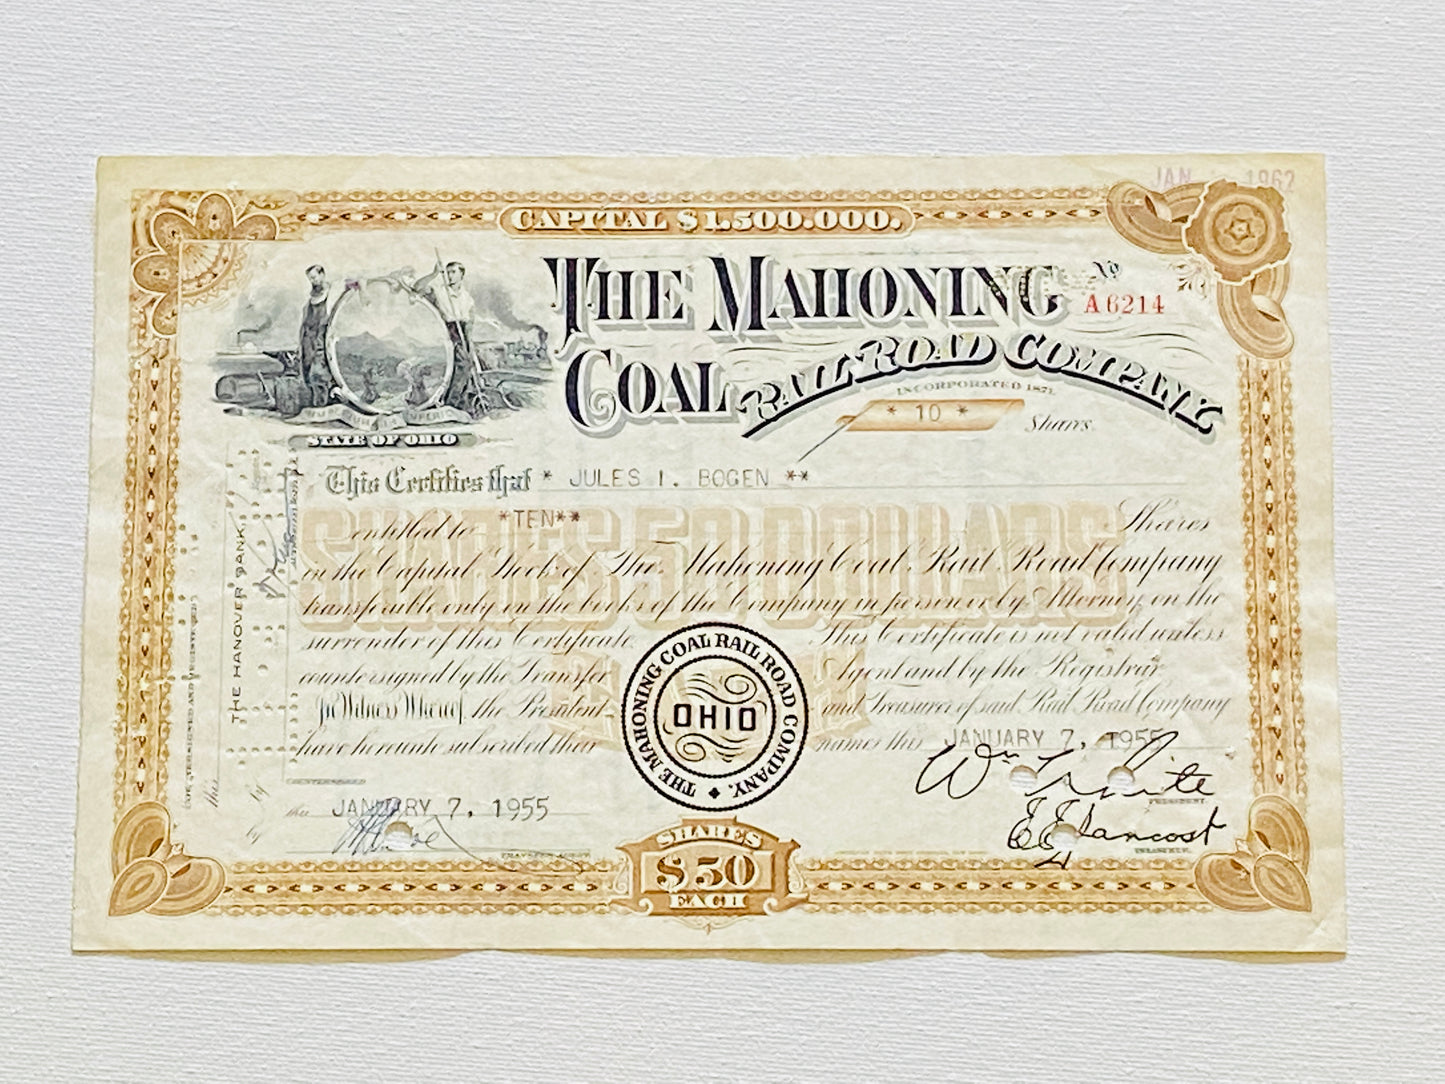 JAN 1962
CAPITAL $1,500,000.
THE MAHONING
Nº
A6214
COAL RAIL ROAD COMPANY.
INCORPORATED 1871.
* 10 * Shares
STATE OF OHIO
This Certifies that * JULES I. BOGEN **
entitled to *TEN** Shares
SHARES 50 DOLLARS
in the Capital Stock of The Mahoning Coal Rail Road Company
transferable only on the books of the Company in person or by Attorney on the
surrender of this Certificate. This Certificate is not valid unless
countersigned by the Transfer Agent and by the Registrar.
In Witness Whereof, the President and Treasurer of said Rail Road Company
have hereunto subscribed their names this JANUARY 7, 1955
THE MAHONING COAL RAIL ROAD COMPANY.
OHIO
Wm White
PRESIDENT.
COUNTERSIGNED
this JANUARY 7, 1955
TRANSFER AGENT
E E Hancost
TREASURER.
SHARES
$50
EACH
COUNTERSIGNED AND REGISTERED
this
THE HANOVER BANK,
by
by